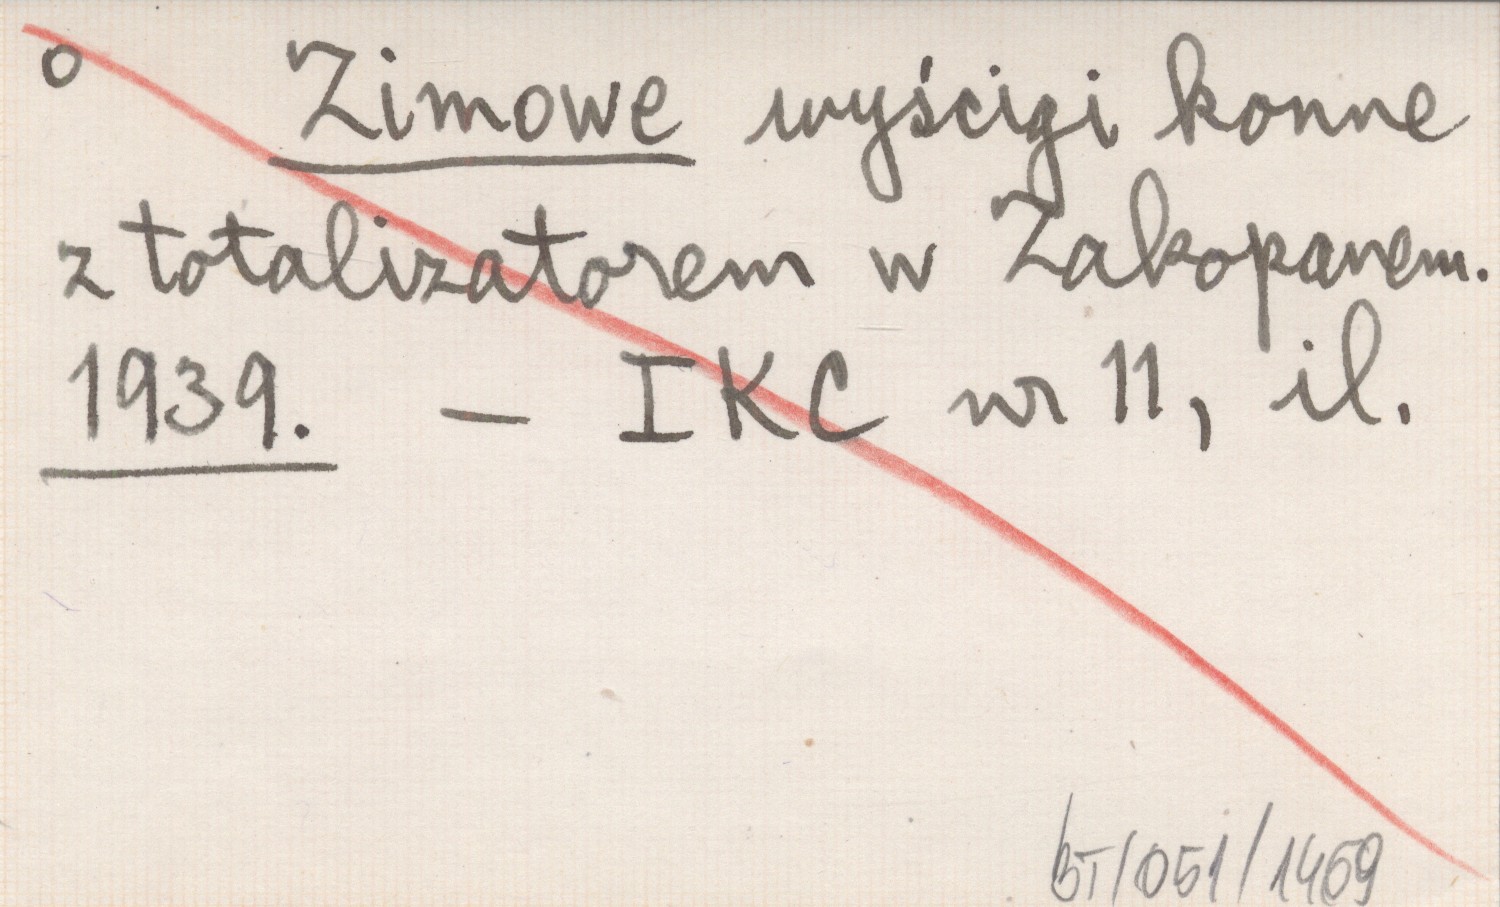 o Zimowe wyścigi konne
z totalizatorem w Zakopanem.
1939. — IKC nr 11, il.
BT/051/1469